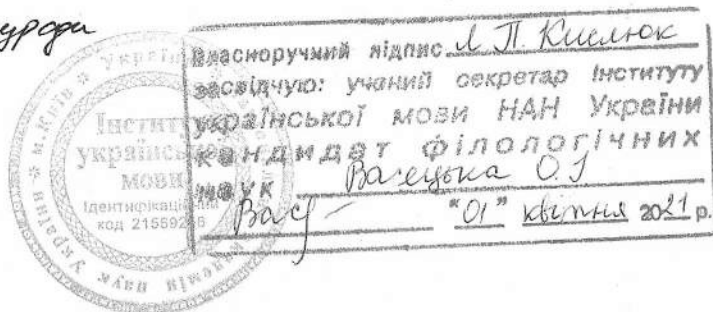 Власноручний підпис Л. П. Кислюк
засвідчую: учений секретар Інституту
української мови НАН України
кандидат філологічних
наук Васецька О.І
"01" квітня 2021 р.
Україн
м. Київ
Інститу
українсько
мови
Ідентифікаційний
код
наук України